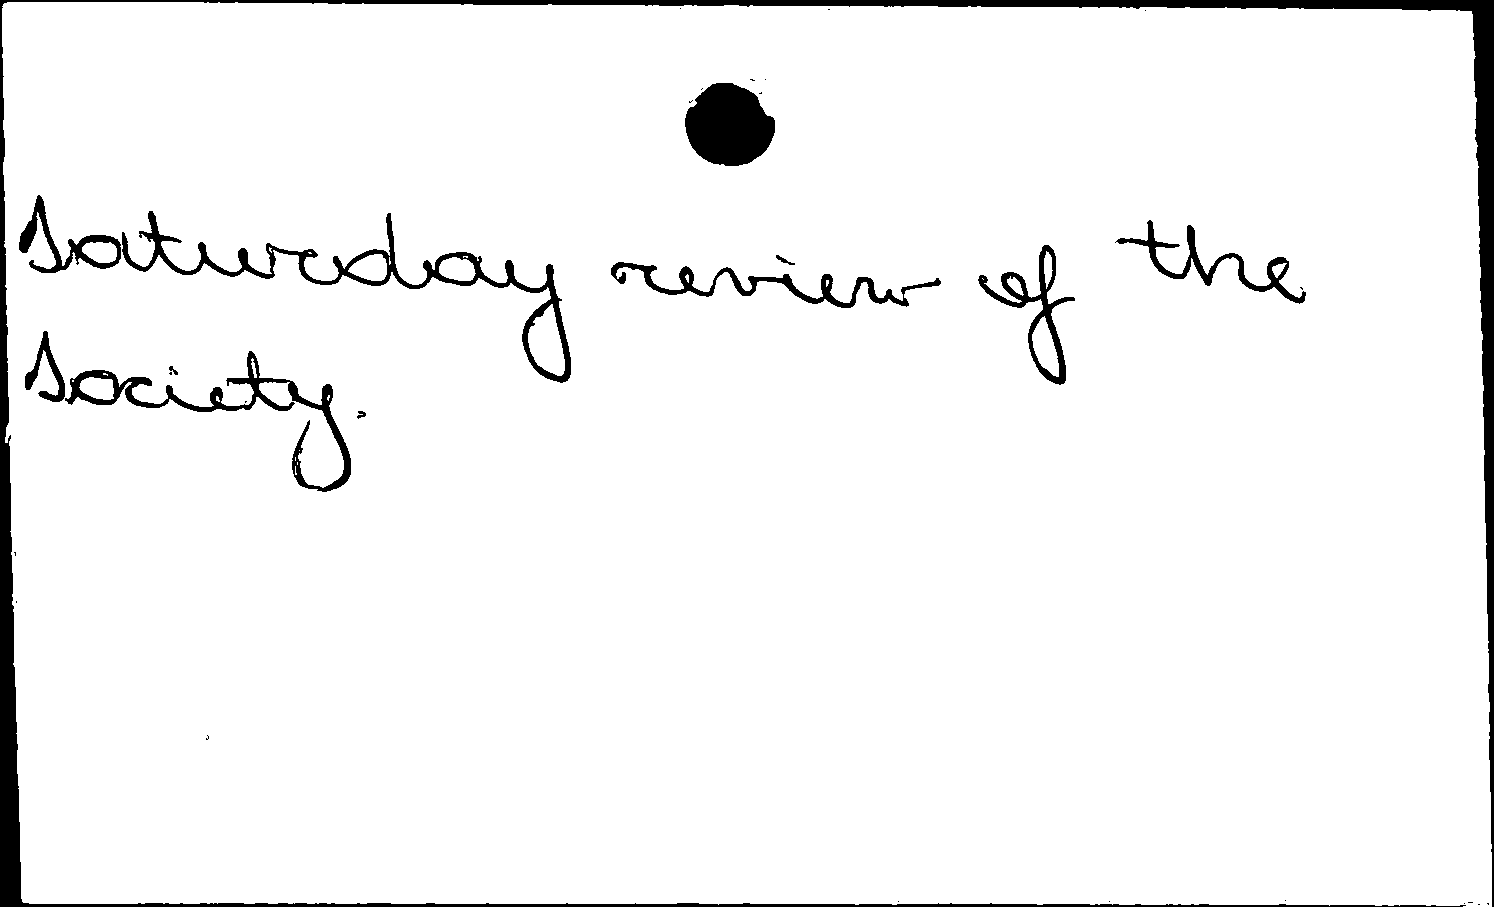 Saturday review of the
Society.